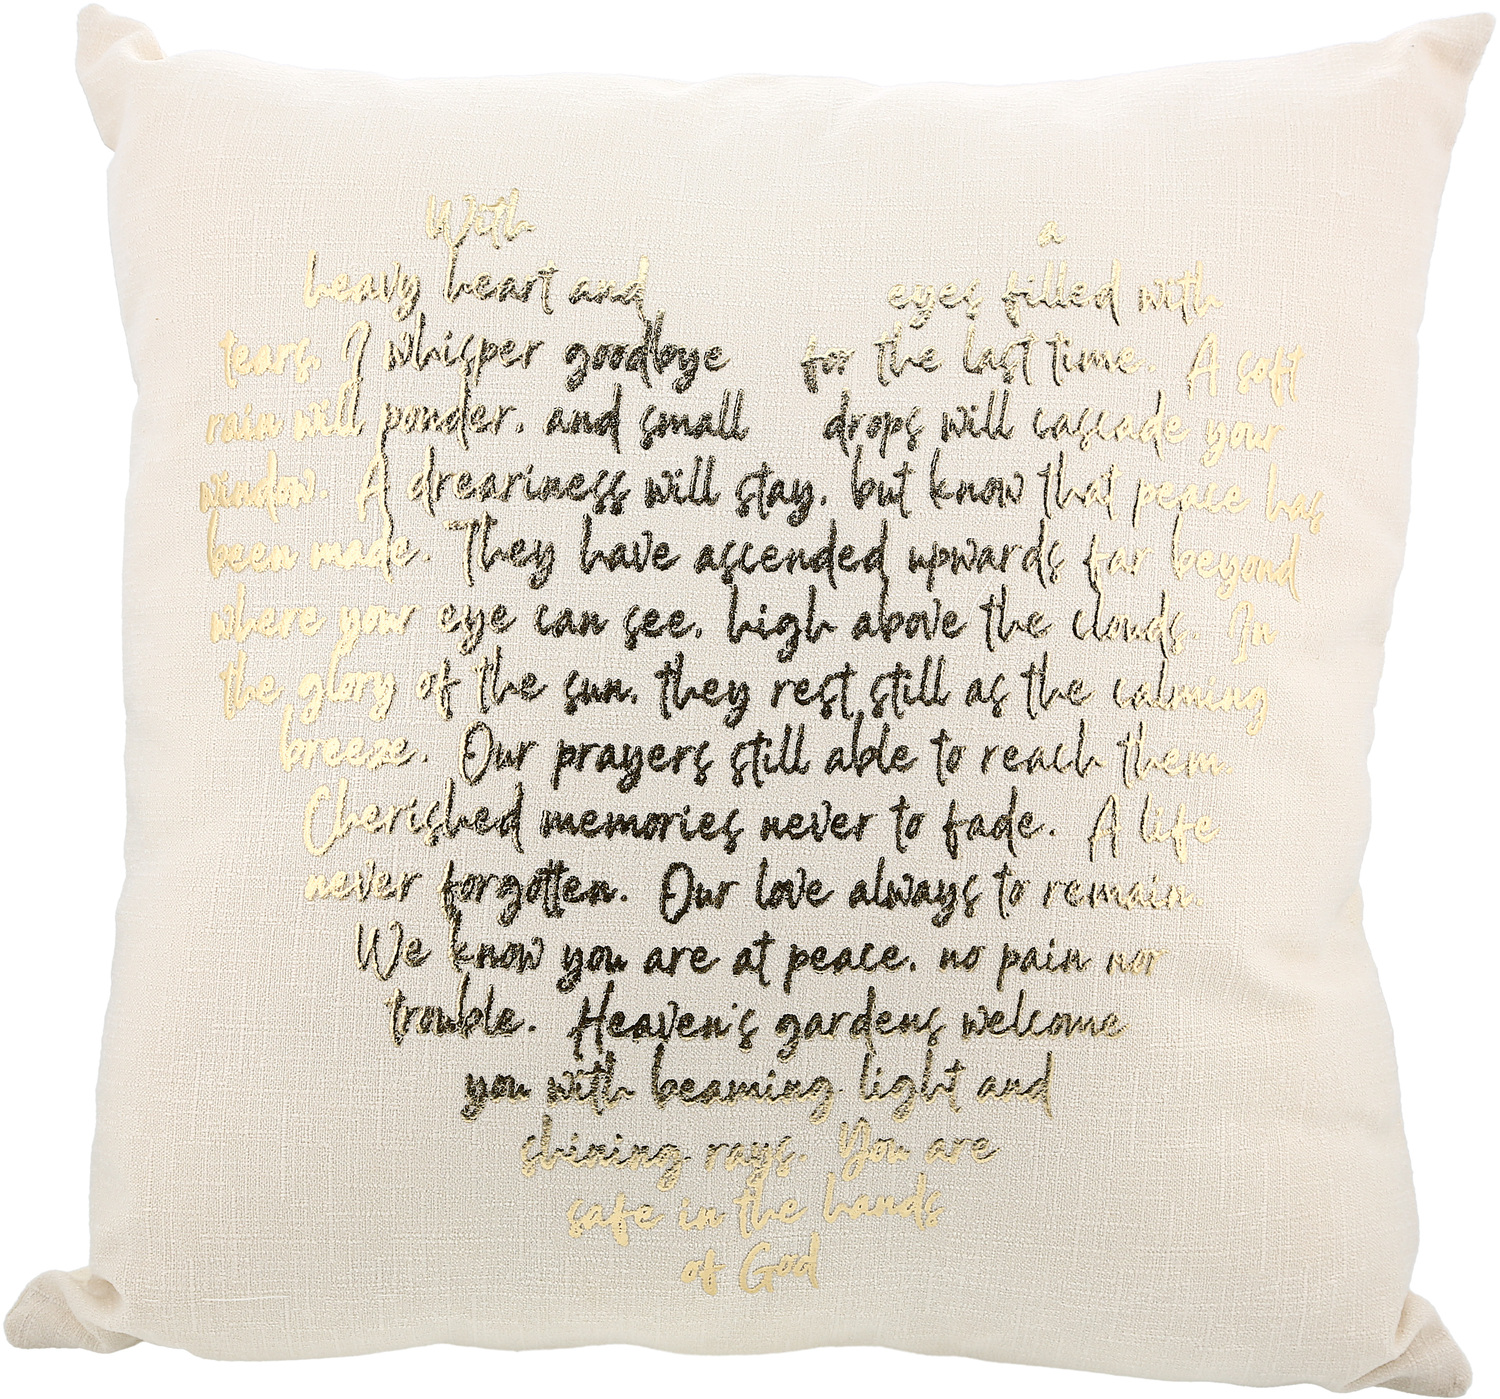 With a
heavy heart and eyes filled with
tears, I whisper goodbye for the last time. A soft
rain will ponder, and small drops will cascade your
window. A dreariness will stay, but know that peace has
been made. They have ascended upwards far beyond
where your eye can see, high above the clouds. In
the glory of the sun, they rest still as the calming
breeze. Our prayers still able to reach them.
Cherished memories never to fade. A life
never forgotten. Our love always to remain.
We know you are at peace, no pain nor
trouble. Heaven's gardens welcome
you with beaming light and
shining rays. You are
safe in the hands
of God